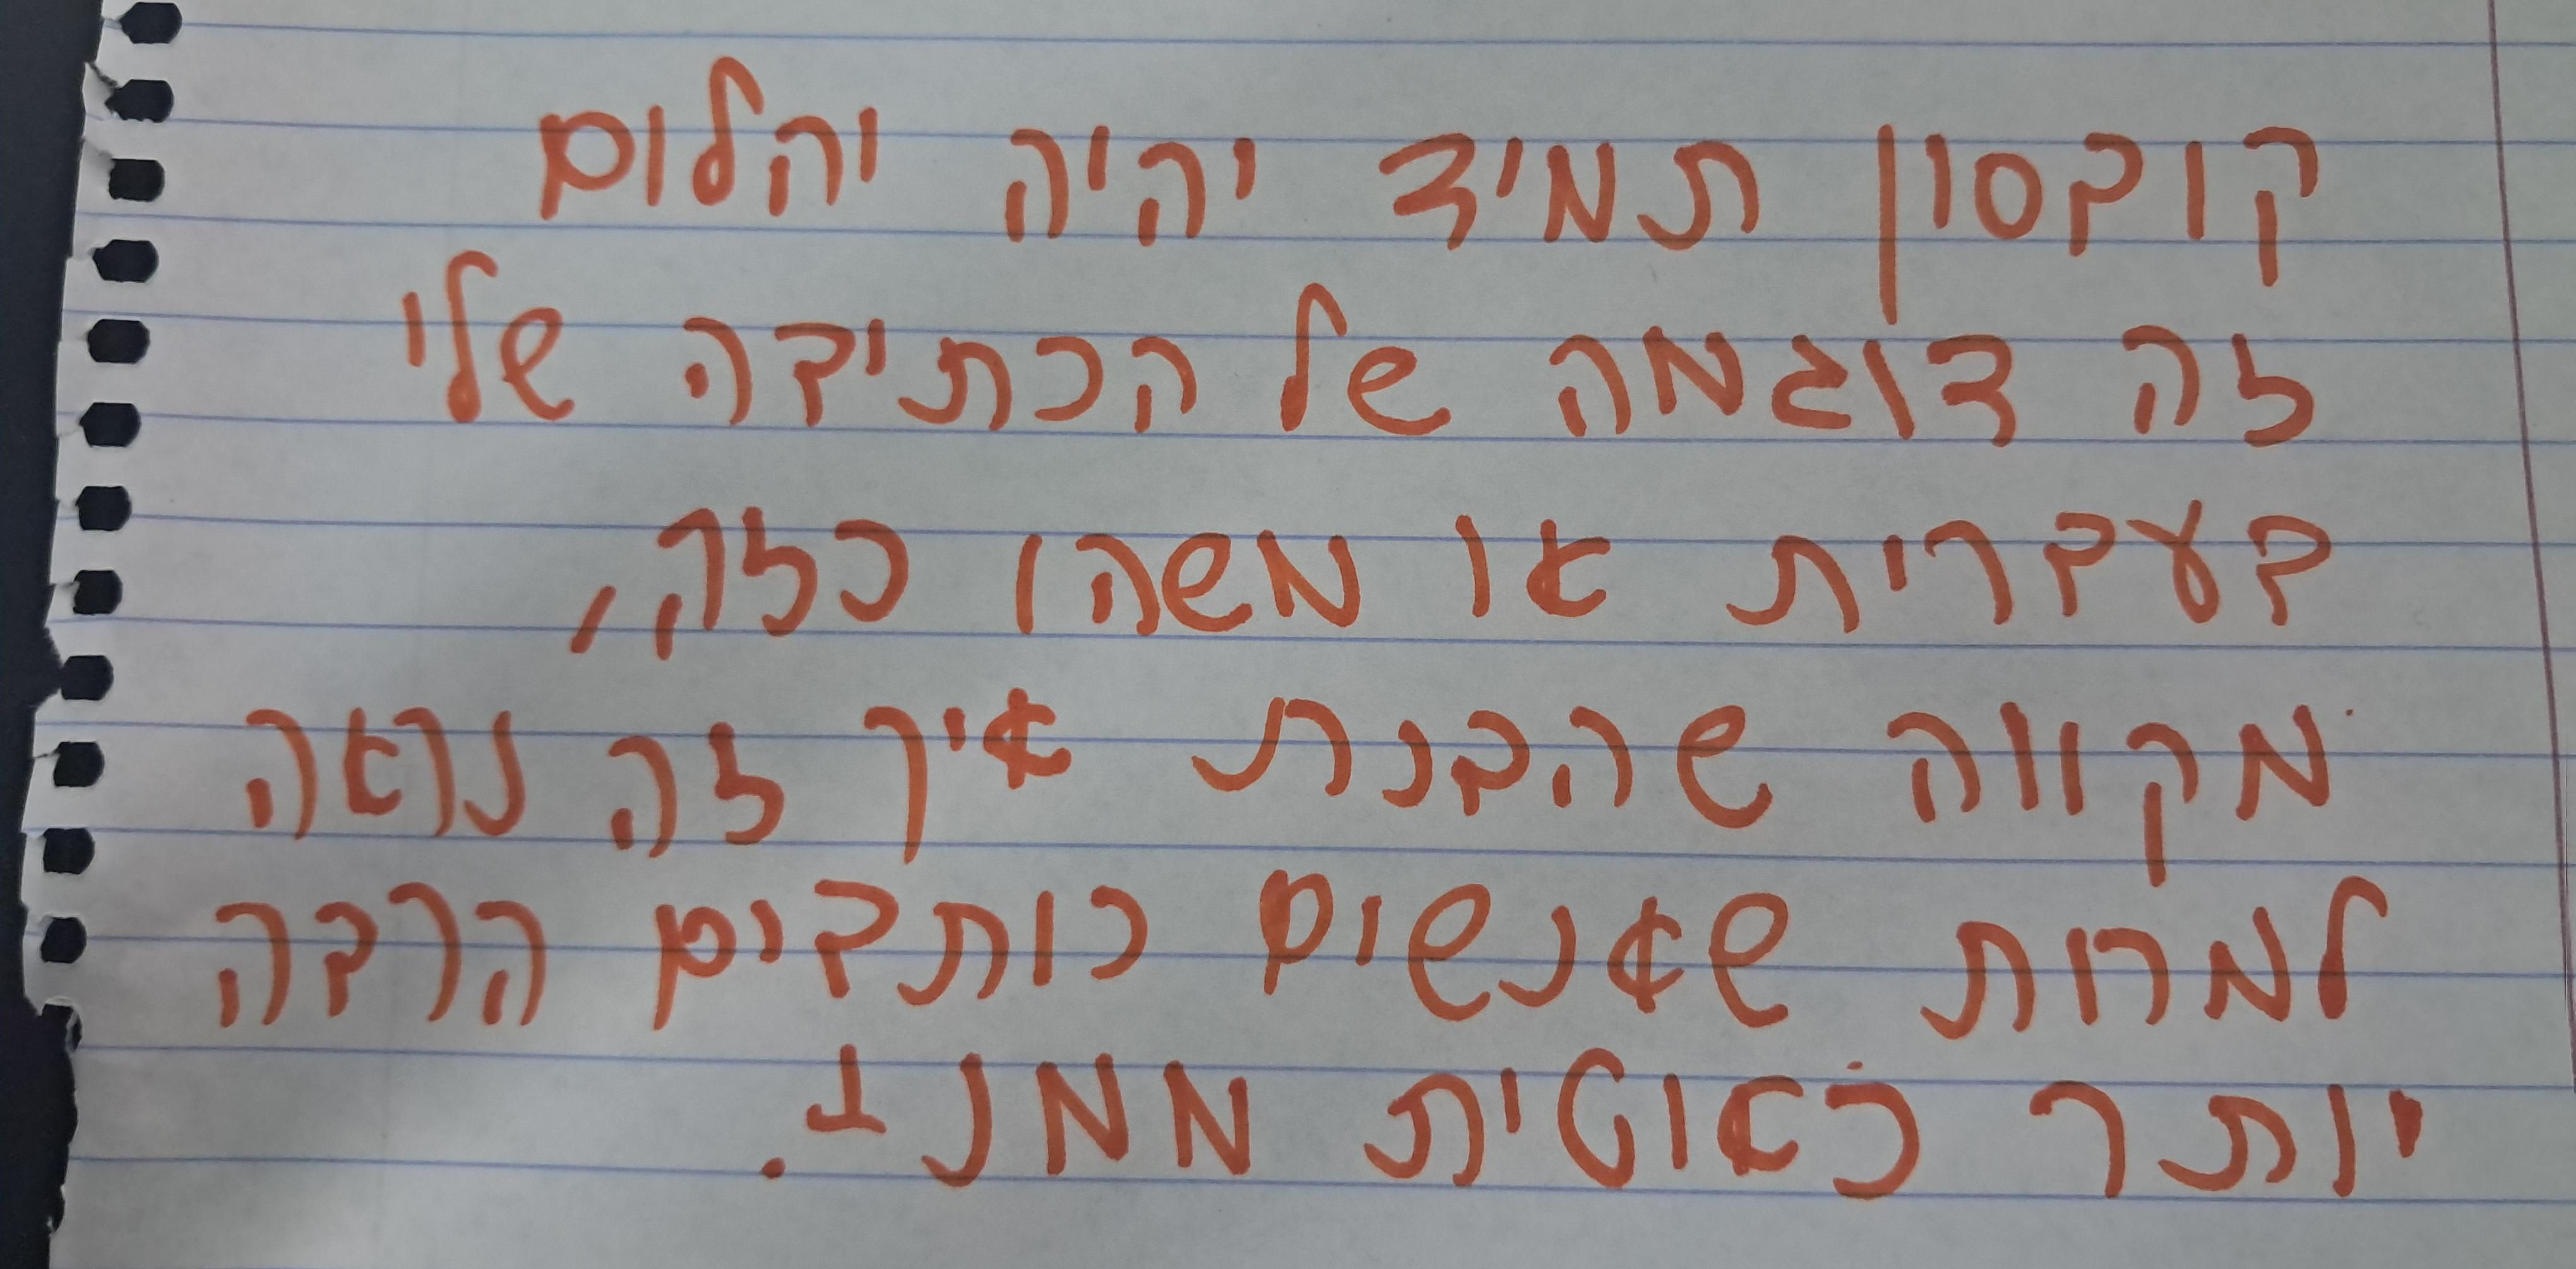 קובסון תמיד יהיה יהלום
זה דוגמה של הכתיבה שלי
בעברית או משהו כזה,
מקווה שהבנת איך זה נראה
למרות שאנשים כותבים הרבה
יותר כאוטית ממני.